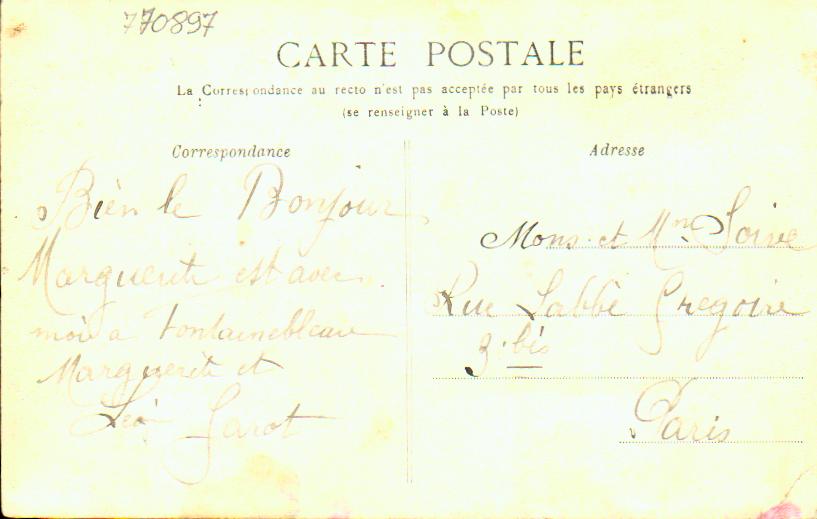 770897
CARTE POSTALE
La Correspondance au recto n'est pas acceptée par tous les pays étrangers
(se renseigner à la Poste)
Correspondance
Bien le Bonjour
Marguerite est avec
moi a Fontainebleau
Marguerite et
Léo Garot
Adresse
Mons. et Mme Soive
Rue Labbé Gregoire
3 bis
Paris